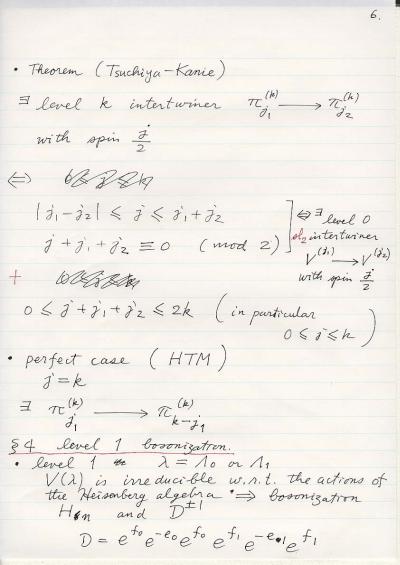 6.
• Theorem (Tsuchiya-Kanie)
∃ level k intertwiner π_{j_1}^{(k)} ⟶ π_{j_2}^{(k)}
with spin j/2
⟺
|j_1 - j_2| ≤ j ≤ j_1 + j_2
j + j_1 + j_2 ≡ 0 (mod 2)
⟺ ∃ level 0
sl_2 intertwiner
V^{(j_1)} ⟶ V^{(j_2)}
with spin j/2
+
0 ≤ j + j_1 + j_2 ≤ 2k (in particular
0 ≤ j ≤ k)
• perfect case (HTM)
j = k
∃ π_{j_1}^{(k)} ⟶ π_{k-j_1}^{(k)}
§4 level 1 bosonization.
• level 1 λ = Λ_0 or Λ_1
V(λ) is irreducible w.r.t. the actions of
the Heisenberg algebra ⟹ bosonization
H_{n} and D^{±1}
D = e^{f_0} e^{-e_0} e^{f_0} e^{f_1} e^{-e_1} e^{f_1}